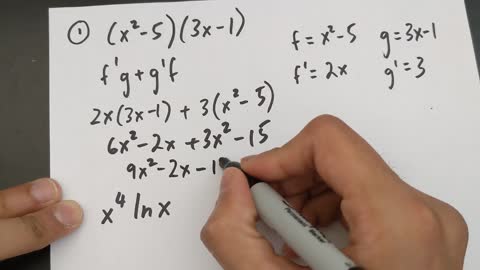 ① (x²-5)(3x-1)
f = x²-5 g = 3x-1
f'g + g'f
f' = 2x g' = 3
2x(3x-1) + 3(x²-5)
6x²-2x+3x²-15
9x²-2x-1
x⁴ ln x